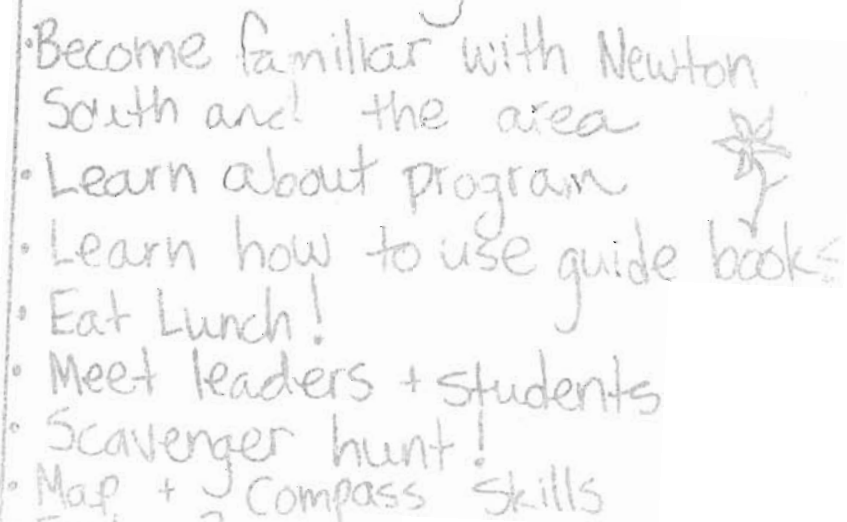 • Become familiar with Newton
South and the area
• Learn about program
• Learn how to use guide books
• Eat Lunch!
• Meet leaders + students
• Scavenger hunt!
• Map + Compass Skills